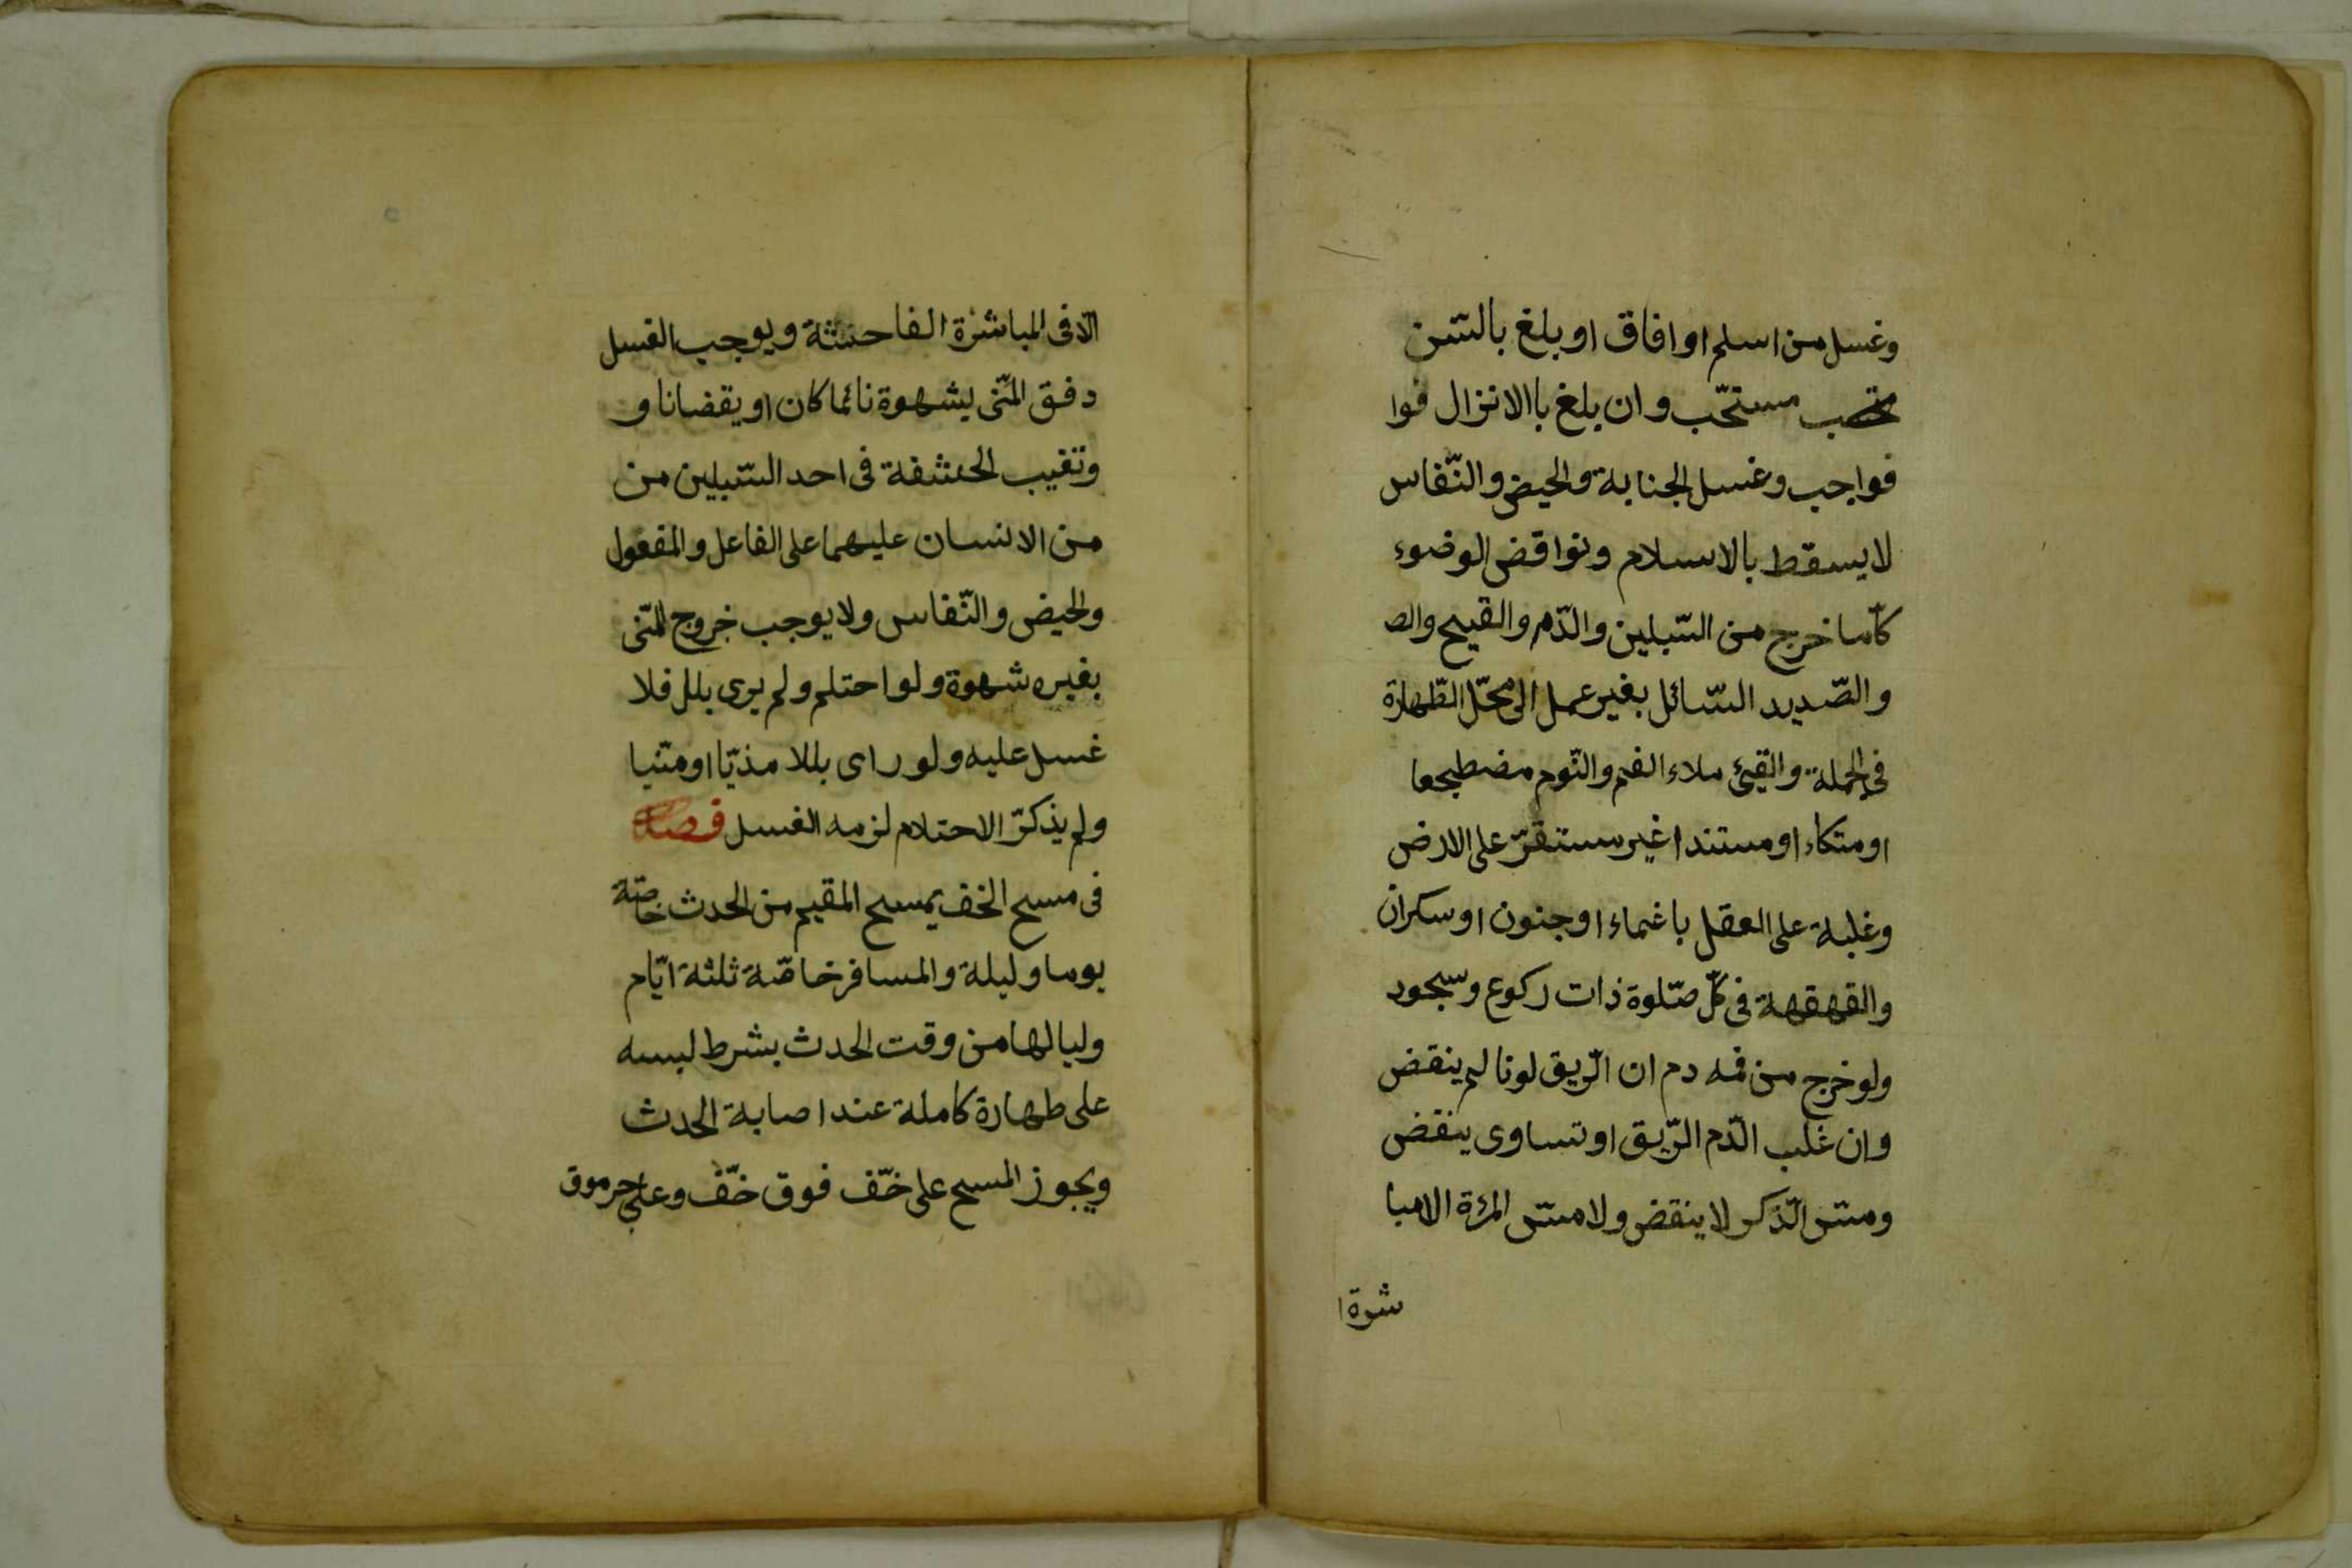 وغسل من اسلم او افاق او بلغ بالسّن
مستحّب وان بلغ باالانزال فوا
فواجب وغسل الجنابة والحيض والنّفاس
لا يسقط بالاسلام ونواقض الوضوء
كلّما خرج من السّبيلين والدّم والقيح والص
والصّديد السّائل بغير عمل الى محّل الطّهارة
فى الجملة والقيئ ملاء الفم والنّوم مضطجعا
او متكاء او مستندا غير مستقرّ على الارض
وغلبة على العقل باغماء او جنون او سكران
والقهقهة فى كلّ صّلوة ذات ركوع وسجود
ولو خرج من فمه دم ان الرّيق لونا لم ينقض
وان غلب الدّم الرّيق او تساوى ينقض
ومسّ الذّكر لا ينقض ولا مسّ المرئة الامبا
شرة ا
الّا فى المباشرة الفاحشة ويوجب الغسل
دفق المنّى بشهوة نائما كان او يقضانا و
وتغيب الحشفة فى احد السّبيلين من
من الانسان عليهما على الفاعل والمفعول
والحيض والنّفاس ولا يوجب خروج المنّى
بغير شهوة ولو احتلم ولم يرى بلل فلا
غسل عليه ولو راى بللا مذيّا او منّيا
ولم يذكرّ الاحتلام لزمه الغسل فصل
فى مسح الخف يمسح المقيم من الحدث خاصّة
يوما وليلة والمسافر خاصّة ثلثة ايّام
وليالها من وقت الحدث بشرط لبسه
على طهارة كاملة عند اصابة الحدث
ويجوز المسح على خفّ فوق خفّ وعلى جرموق